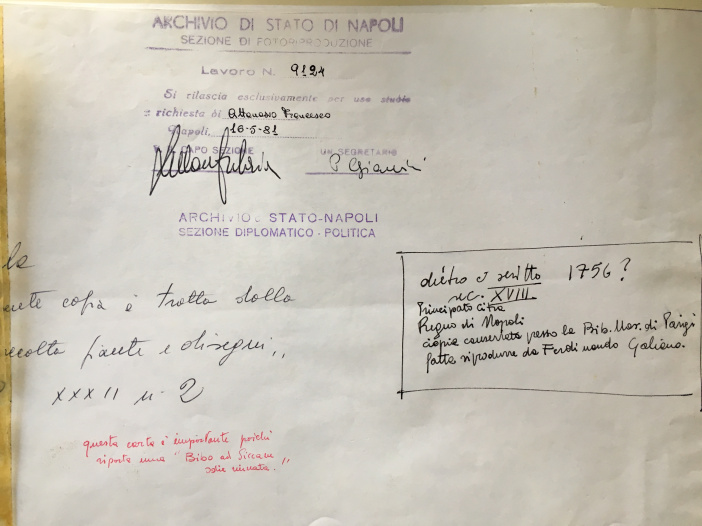 ARCHIVIO DI STATO DI NAPOLI
SEZIONE DI FOTORIPRODUZIONE
Lavoro N. 9124
Si rilascia esclusivamente per uso studio
a richiesta di Attanasio Francesco
Napoli, 16-5-81
IL CAPO SEZIONE
UN SEGRETARIO
P Giannini
ARCHIVIO STATO-NAPOLI
SEZIONE DIPLOMATICO - POLITICA
la
ente copia è tratta dalla
ccolta piante e disegni,,
XXXII n. 2
dietro è scritto 1756?
sec. XVIII
Principato Citra
Regno di Napoli
copia conservata presso la Bib. Naz. di Parigi
fatta riprodurre da Ferdinando Galiano.
questa carta è importante poichè
riporta una "Bibo ad Siccam,,